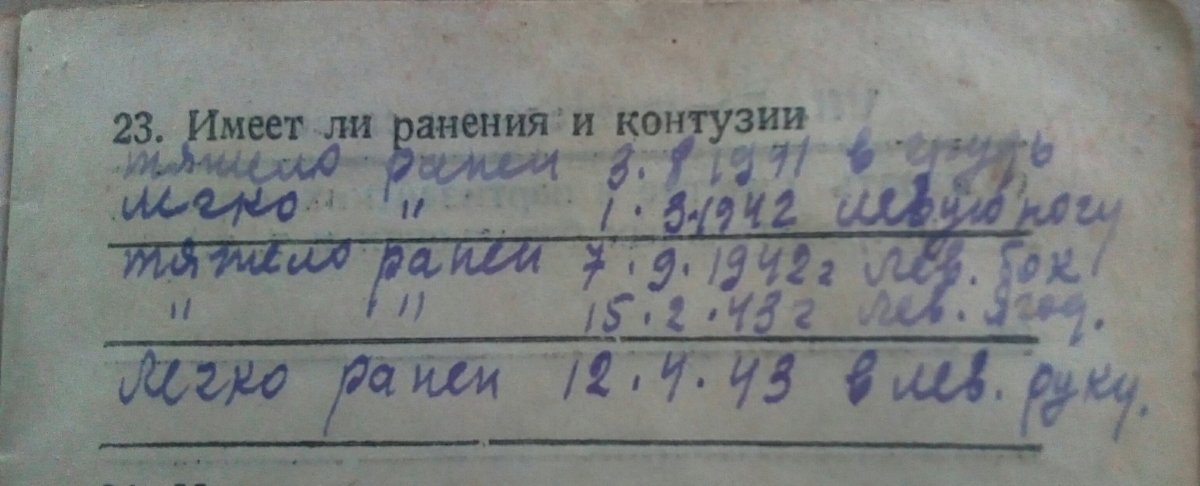 23. Имеет ли ранения и контузии
тяжело ранен 3.8 1941 в грудь
легко " 1.3.1942 левую ногу
тяжело ранен 7.9.1942 г лев. бок
" " 15.2.43 г лев. ягод.
Легко ранен 12.4.43 в лев. руку.